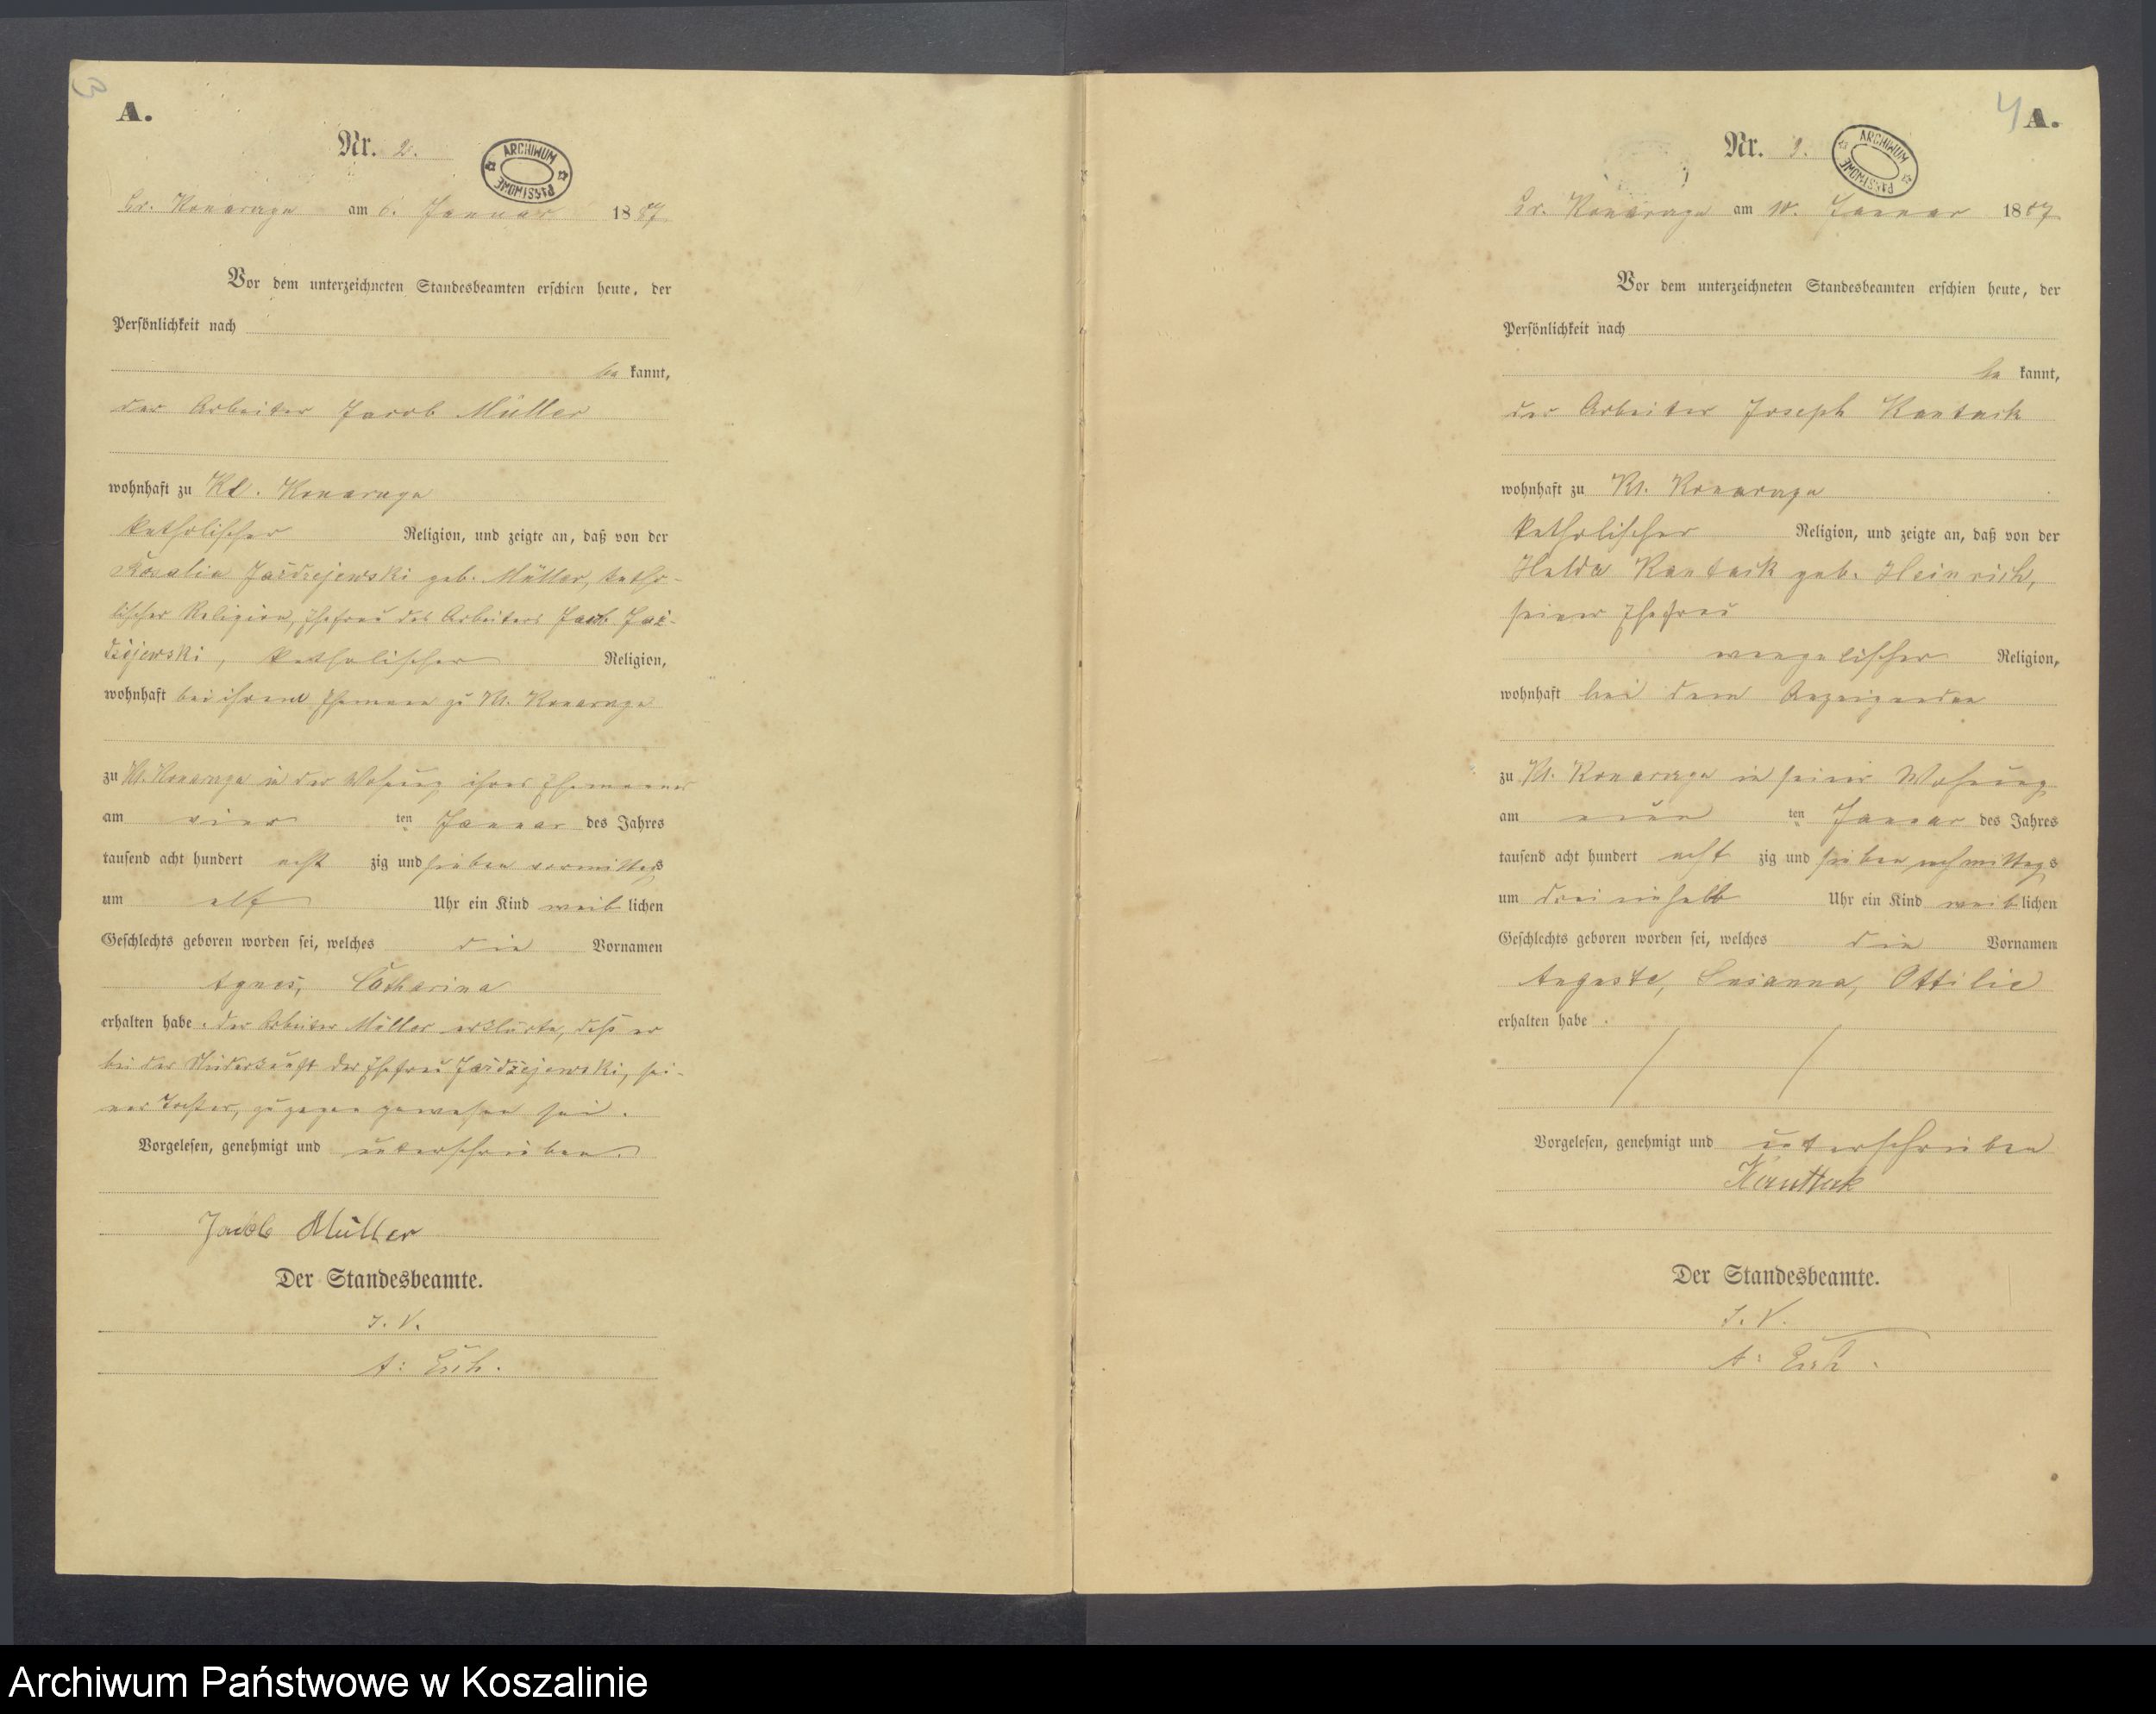 3
A.
Nr. 2.
ARCHIWUM PAŃSTWOWE
Gr. Konarczyn am 6. Januar 1887
Vor dem unterzeichneten Standesbeamten erschien heute, der
Persönlichkeit nach
be kannt,
der Arbeiter Jacob Müller
wohnhaft zu Kl. Konarczyn
katholischer Religion, und zeigte an, daß von der
Rosalia Jażdżejewski geb. Müller, katho-
lischer Religion, Ehefrau des Arbeiters Jacob Jaż-
dżejewski, katholischer Religion,
wohnhaft bei ihrem Ehemann zu Kl. Konarczyn
zu Kl. Konarczyn in der Wohnung ihres Ehemannes
am vier ten Januar des Jahres
tausend acht hundert acht zig und sieben vormittags
um elf Uhr ein Kind weib lichen
Geschlechts geboren worden sei, welches die Vornamen
Agnes, Catharina
erhalten habe. Der Arbeiter Müller erklärte, daß er
bei der Niederkunft der Ehefrau Jażdżejewski, sei-
ner Tochter, zugegen gewesen sei.
Vorgelesen, genehmigt und unterschrieben.
Jacob Müller
Der Standesbeamte.
I. V.
A:
4 A.
Nr.
ARCHIWUM PAŃSTWOWE
Gr. Konarczyn am 10. Januar 1887
Vor dem unterzeichneten Standesbeamten erschien heute, der
Persönlichkeit nach
be kannt,
der Arbeiter Joseph Kantack
wohnhaft zu Kl. Konarczyn
katholischer Religion, und zeigte an, daß von der
Hulda Kantack geb. Heinrich,
seiner Ehefrau
evangelischer Religion,
wohnhaft bei dem Anzeigenden
zu Kl. Konarczyn in seiner Wohnung
am neun ten Januar des Jahres
tausend acht hundert acht zig und sieben nachmittags
um drei einhalb Uhr ein Kind weib lichen
Geschlechts geboren worden sei, welches die Vornamen
Auguste, Susanna, Ottilie
erhalten habe.
Vorgelesen, genehmigt und unterschrieben
Kanttack
Der Standesbeamte.
I. V.
A:
Archiwum Państwowe w Koszalinie